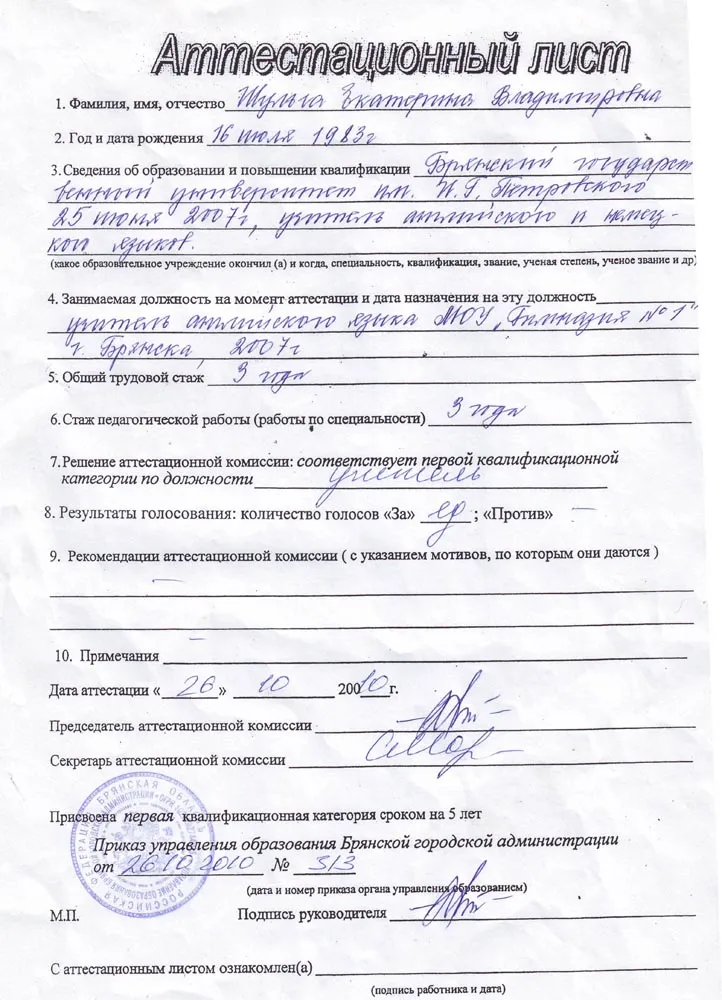 Аттестационный лист
1. Фамилия, имя, отчество Шульга Екатерина Владимировна
2. Год и дата рождения 16 июля 1983г
3.Сведения об образовании и повышении квалификации Брянский государст
венный университет им. И.Г. Петровского
25 июня 2007г, учитель английского и немец-
кого языков.
(какое образовательное учреждение окончил (а) и когда, специальность, квалификация, звание, ученая степень, ученое звание и др)
4. Занимаемая должность на момент аттестации и дата назначения на эту должность
учитель английского языка МОУ „Гимназия №1"
г. Брянска, 2007г
5. Общий трудовой стаж 3 года
6.Стаж педагогической работы (работы по специальности) 3 года
7.Решение аттестационной комиссии: соответствует первой квалификационной
категории по должности учитель
8. Результаты голосования: количество голосов «За» ед ; «Против» —
9. Рекомендации аттестационной комиссии ( с указанием мотивов, по которым они даются )
—
—
10. Примечания
Дата аттестации « 26 » 10 2010 г.
Председатель аттестационной комиссии
Секретарь аттестационной комиссии
Присвоена первая квалификационная категория сроком на 5 лет
Приказ управления образования Брянской городской администрации
от 26.10.2010 № 313
(дата и номер приказа органа управления образованием)
М.П. Подпись руководителя
С аттестационным листом ознакомлен(а)
(подпись работника и дата)
РОССИЙСКАЯ ФЕДЕРАЦИЯ БРЯНСКАЯ ОБЛАСТЬ